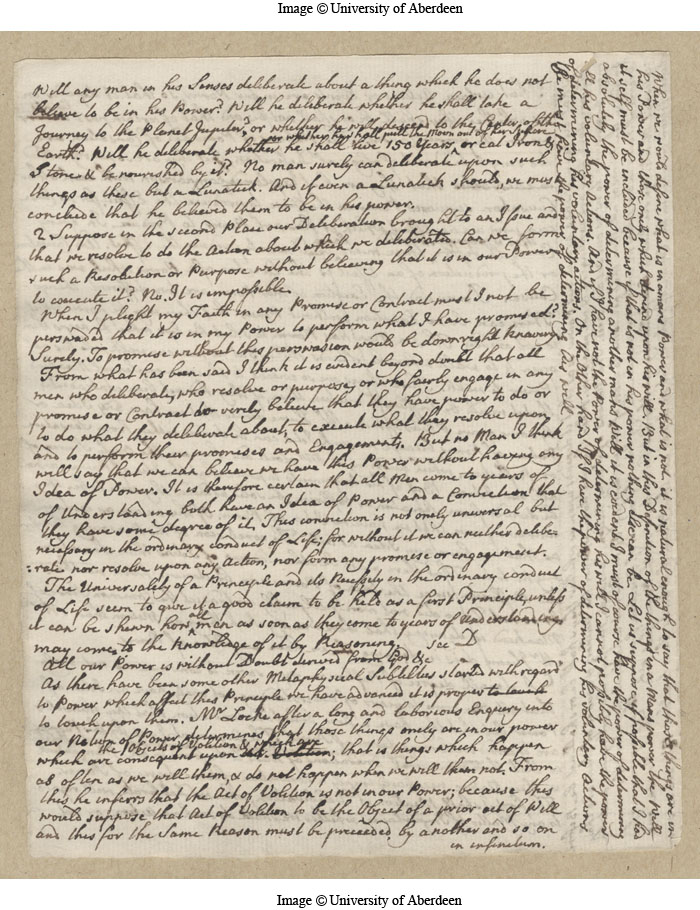 Image © University of Aberdeen
Will any man in his Senses deliberate about a thing which he does not
believe to be in his Power? Will he deliberate whether he shall take a
Journey to the Planet Jupiter, or whether he will descend to the Center of the
or whether he shall pull the Moon out of her Sphere
Earth? Will he deliberate whether he shall live 150 Years, or eat Iron &
Stones & be nourished by it? No man surely can deliberate upon such
things as these but a Lunatick. And if even a Lunatick should, we must
conclude that he believed them to be in his power.
2 Suppose in the second Place our Deliberation brought to an Issue and
that we resolve to do the Action about which we deliberate. Can we form
such a Resolution or Purpose without believing that it is in our Power
to execute it? No. It is impossible.
When I plight my Faith in any Promise or Contract must I not be
perswaded that it is in my Power to perform what I have promised?
Surely. To promise without this perswasion would be downright knavery
From what has been said I think it is evident beyond doubt that all
men who deliberate, who resolve or purpose, or who fairly engage in any
promise or Contract do verily believe that they have power to do or
to do what they deliberate about, to execute what they resolve upon
and to perform their promises and Engagements. But no Man I think
will say that we can believe we have this Power without having any
Idea of Power. It is therefore certain that all Men come to years of
of Understanding both have an Idea of Power and a Conviction that
they have some degree of it. This conviction is not onely universal but
necessary in the ordinary conduct of Life; for without it we can neither delibe-
:rate nor resolve upon any Action, nor form any promise or engagement.
The Universality of a Principle and its Necessity in the ordinary conduct
of Life seem to give it a good claim to be held as a first Principle, unless
all
it can be shewn how men as soon as they come to years of Understanding
may come to the Knowledge of it by Reasoning. See D
All our Power is without Doubt derived from God &c
As there have been some other Metaphysical Subtilties started with regard
to Power which affect this Principle we have advanced it is proper to touch
to touch upon them. Mr Locke after a long and laborious Enquiry into
our Notion of Power determines that those things onely are in our power
the Objects of Volition & which are
which are consequent upon Volition; that is things which happen
as often as we will them, & do not happen when we will them not. From
this he inferrs that the Act of Volition is not in our Power; because this
would suppose that Act of Volition to be the Object of a prior act of Will
and this for the Same Reason must be preceeded by another and so on
in infinitum.
When we would define what is in a mans Power and what is not. it is natural enough to say that those things are in
his Power and those onely which depend upon his will. But in this Definition of the things in a Mans power the Will
it self must be included because if that is not in his power nothing else can be. Let us suppose if possible that I had
absolutely the power of determining another mans Will, it is evident I must of course have the power of determining
all his voluntary actions. And if I have not the Power of determining his will I cannot possibly have the power
of determining his voluntary actions. On the other hand if I have the power of determining his voluntary actions
I must have the power of determining his will
Image © University of Aberdeen